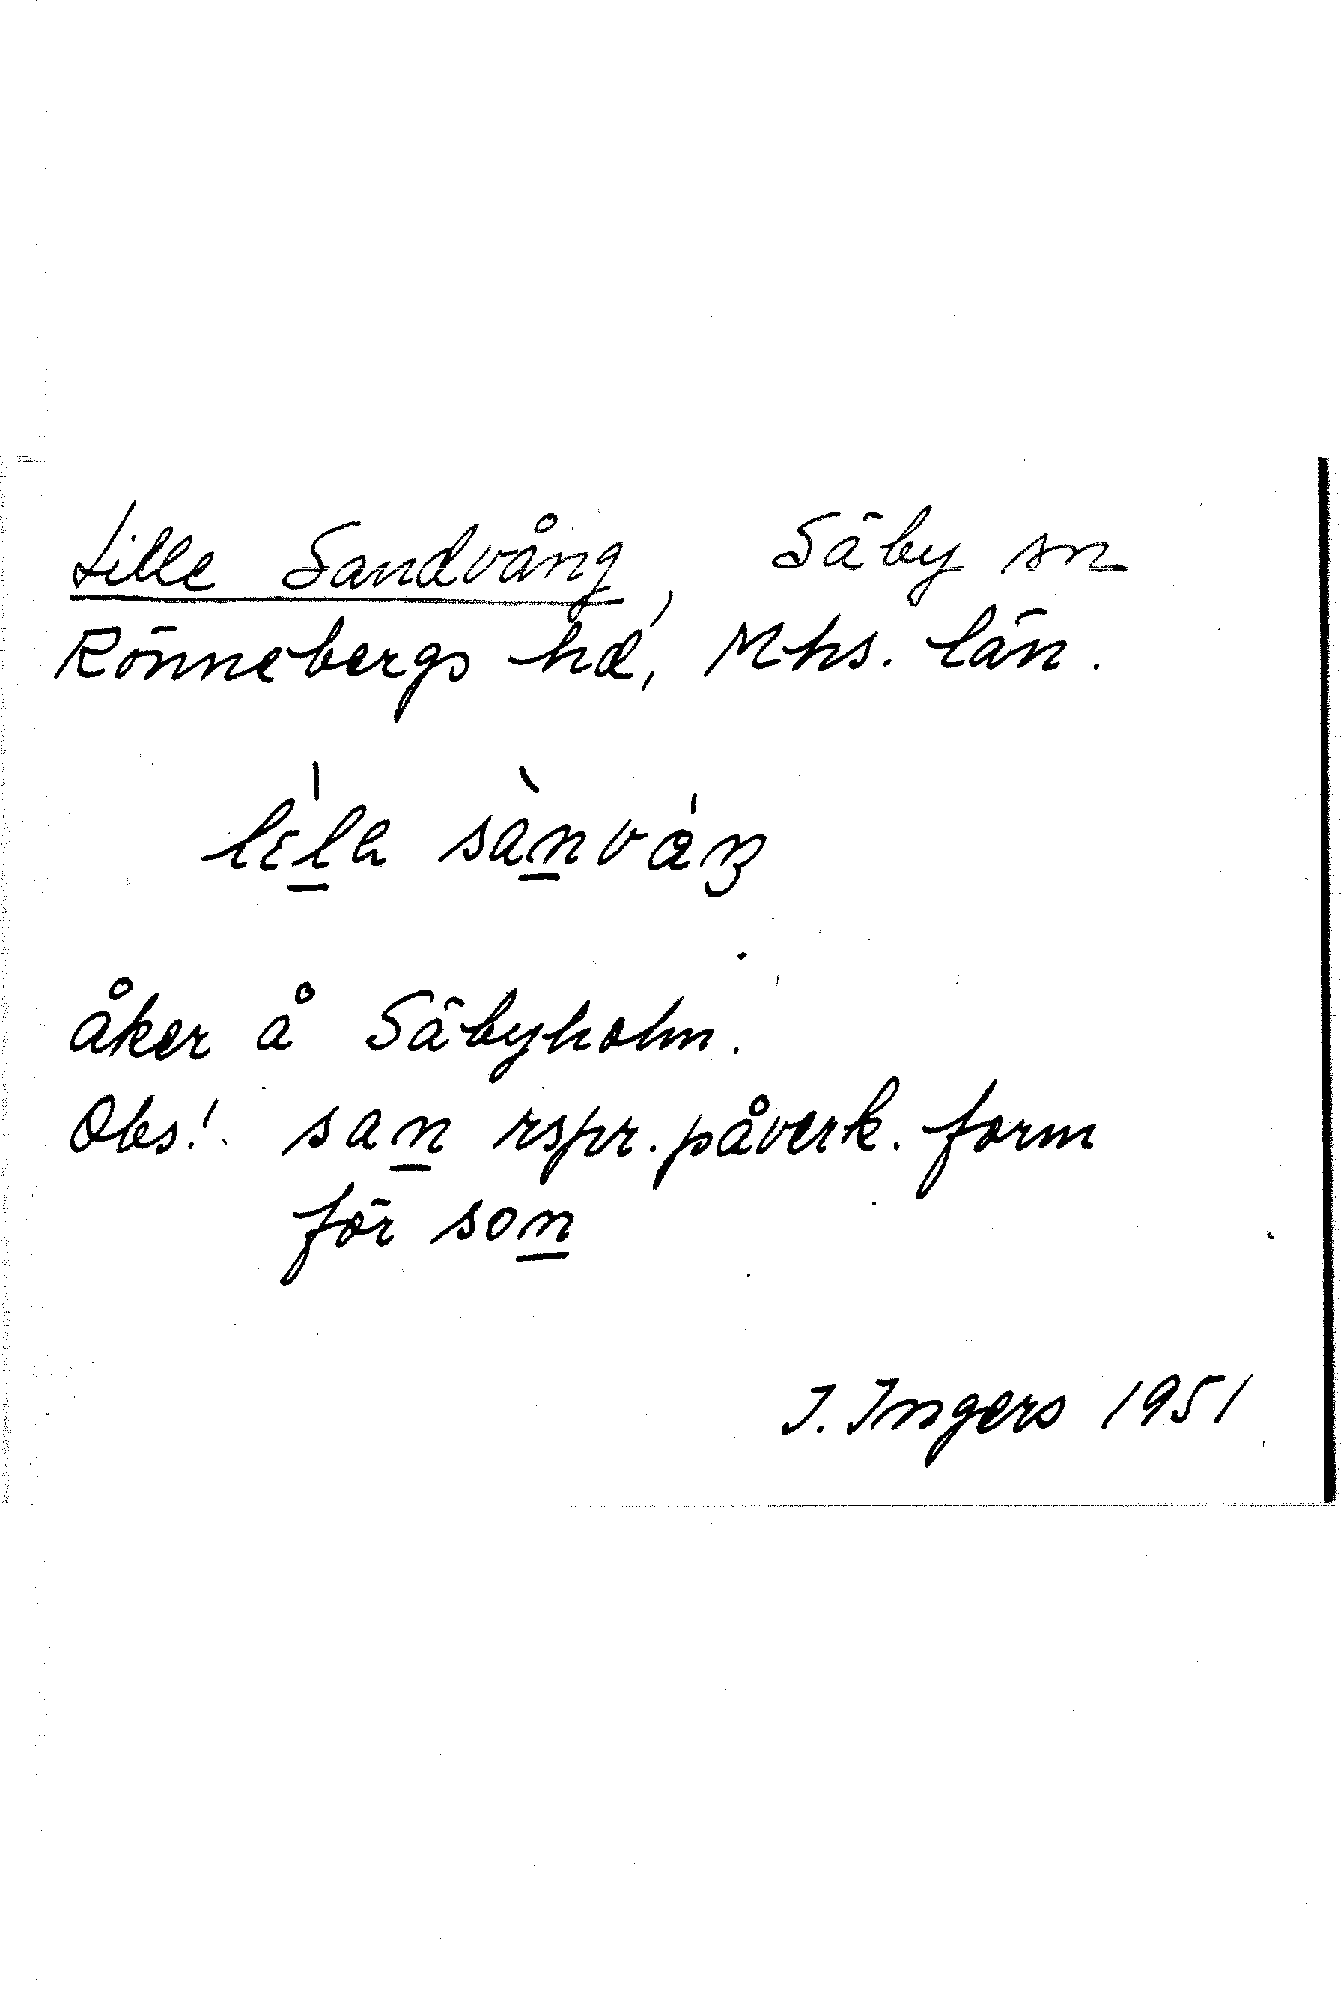 Lille Sandvång, Säby sn
Rönnebergs hd, Mhs. län.
lɛ́l̲a sàn̲váŋ
åker å Säbyholm.
Obs! san̲ rspr. påverk. form
för son̲
I. Ingers 1951